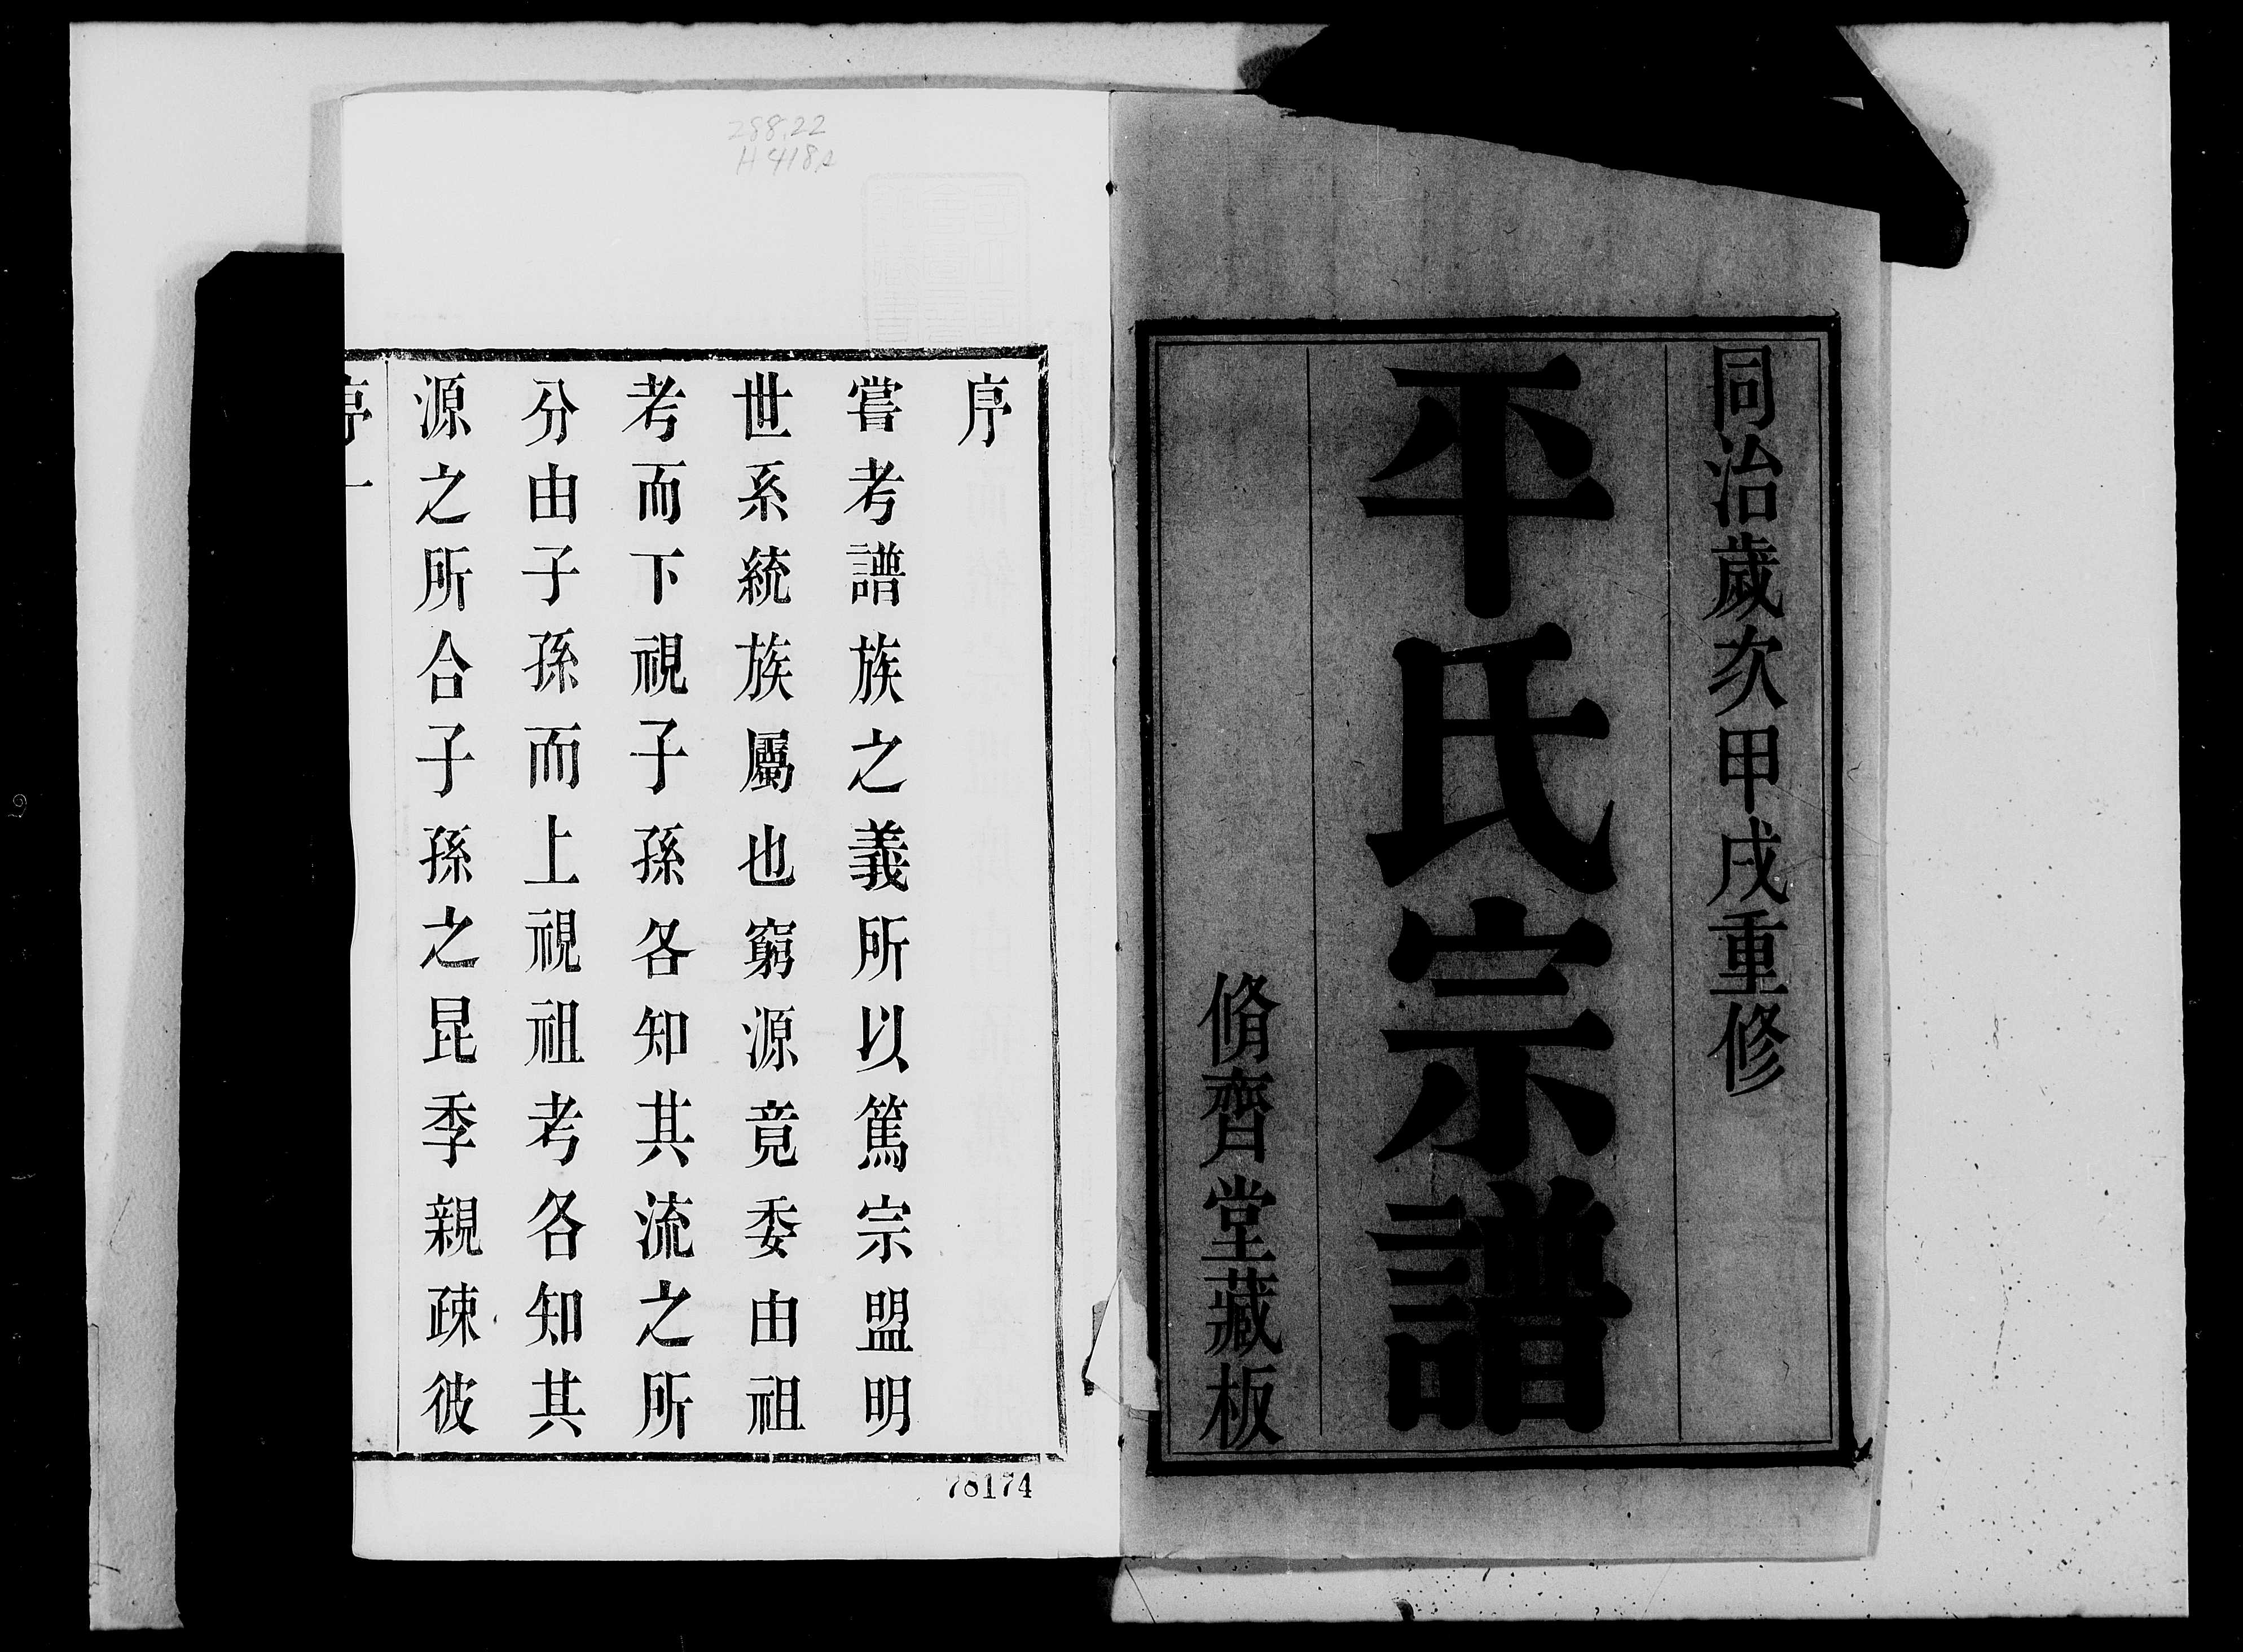 同治歲次甲戌重修
平氏宗譜
脩齊堂藏板
288.22
H418
序
嘗考譜族之義所以篤宗盟明
世系統族屬也窮源竟委由祖
考而下視子孫各知其流之所
分由子孫而上視祖考各知其
源之所合子孫之昆季親疎彼
序一
78174